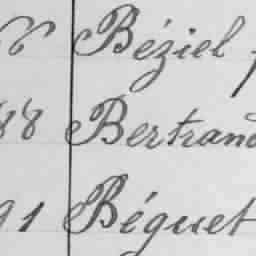 Béziel
88 Bertrand
91 Béguet